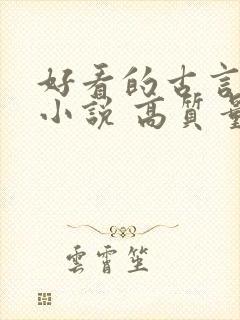 好看的古言
小說 高質量
雲霄笙